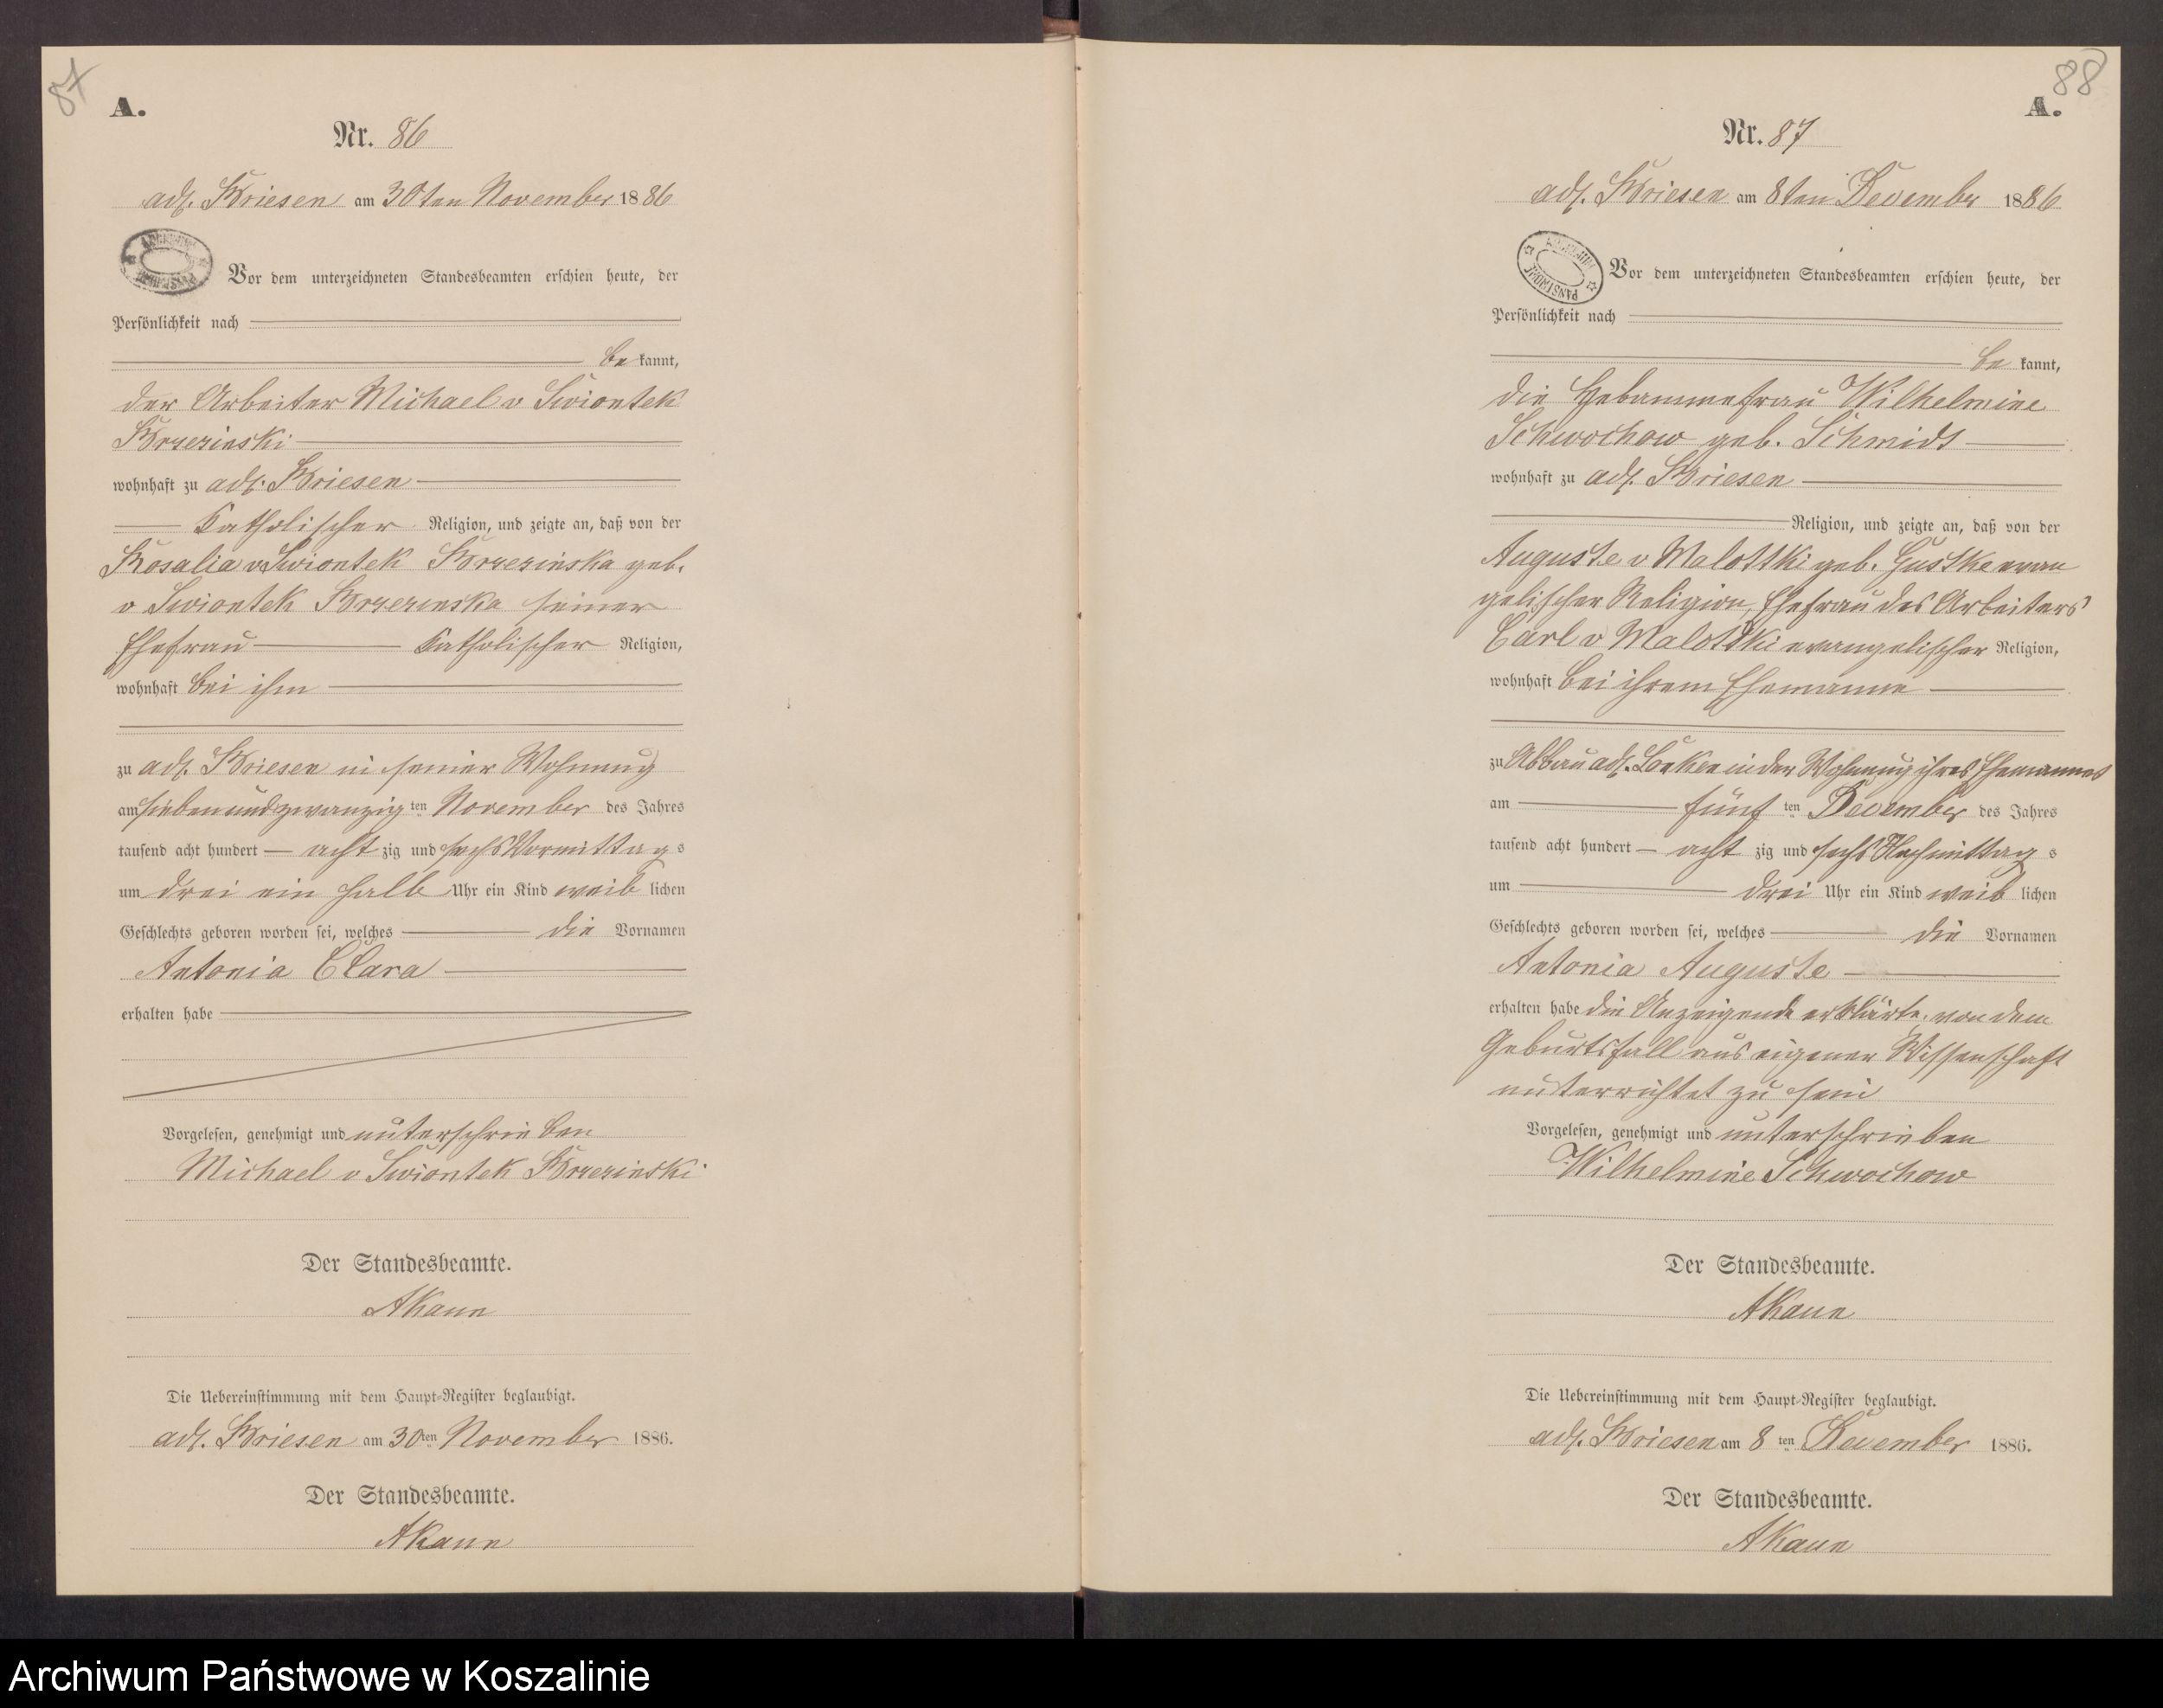 87
A.
Nr. 86
adl. Briesen am 30ten November 1886
ARCHIWUM PAŃSTWOWE
Vor dem unterzeichneten Standesbeamten erschien heute, der
Persönlichkeit nach
be kannt,
der Arbeiter Michael v Swiontek
Brzezinski
wohnhaft zu adl. Briesen
Katholischer Religion, und zeigte an, daß von der
Rosalia v Swiontek Brzezinska geb.
v Swiontek Brzezinska seiner
Ehefrau Katholischer Religion,
wohnhaft bei ihm
zu adl. Briesen in seiner Wohnung
am siebenundzwanzig ten November des Jahres
tausend acht hundert acht zig und sechs Vormittag s
um drei ein halb Uhr ein Kind weib lichen
Geschlechts geboren worden sei, welches die Vornamen
Antonia Clara
erhalten habe
Vorgelesen, genehmigt und unterschrieben
Michael v Swiontek Brzezinski
Der Standesbeamte.
AKaun
Die Uebereinstimmung mit dem Haupt-Register beglaubigt.
adl. Briesen am 30ten November 1886.
Der Standesbeamte.
AKaun
88
A.
Nr. 87
adl. Briesen am 8ten December 1886
ARCHIWUM PAŃSTWOWE
Vor dem unterzeichneten Standesbeamten erschien heute, der
Persönlichkeit nach
be kannt,
die Hebammefrau Wilhelmine
Schwochow geb. Schmidt
wohnhaft zu adl. Briesen
Religion, und zeigte an, daß von der
Auguste v Malottki geb. Gustke evan
gelischer Religion, Ehefrau des Arbeiters
Carl v Malottki evangelischer Religion,
wohnhaft bei ihrem Ehemanne
zu Abbau adl. in der Wohnung ihres Ehemannes
am fünf ten December des Jahres
tausend acht hundert acht zig und sechs Nachmittag s
um drei Uhr ein Kind weib lichen
Geschlechts geboren worden sei, welches die Vornamen
Antonia Auguste
erhalten habe die Anzeigende erklärte, von dem
Geburtsfall aus eigener Wissenschaft
unterrichtet zu sein
Vorgelesen, genehmigt und unterschrieben
Wilhelmine Schwochow
Der Standesbeamte.
AKaun
Die Uebereinstimmung mit dem Haupt-Register beglaubigt.
adl. Briesen am 8 ten December 1886.
Der Standesbeamte.
AKaun
Archiwum Państwowe w Koszalinie